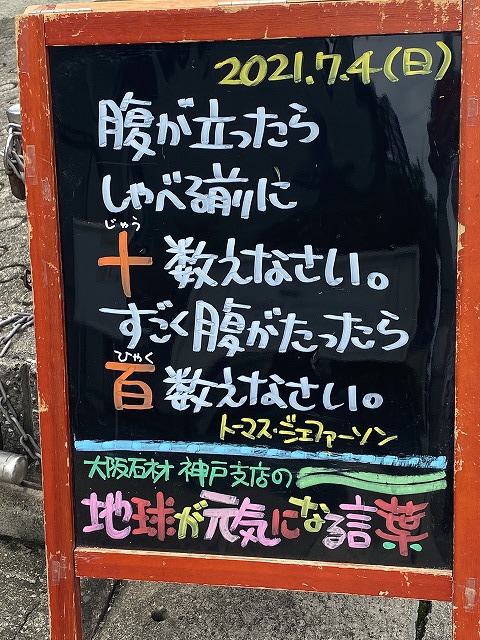 2021.7.4(日)
腹が立ったら
しゃべる前に
じゅう
十数えなさい。
すごく腹がたったら
ひゃく
百数えなさい。
トーマス・ジェファーソン
大阪石材 神戸支店の
地球が元気になる言葉